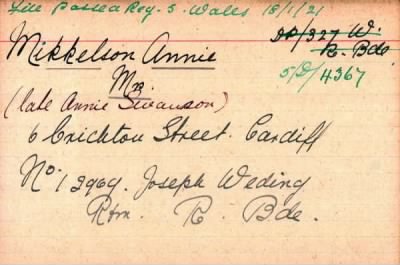 File Passed Reg. S. Wales 15/1/21
SP/327 W.
R. Bde.
Mikkelson Annie
Mrs
5/D/4367
(late Annie Swanson)
6 Crichton Street. Cardiff
No. 12969. Joseph Weding
Rfn. R. Bde.